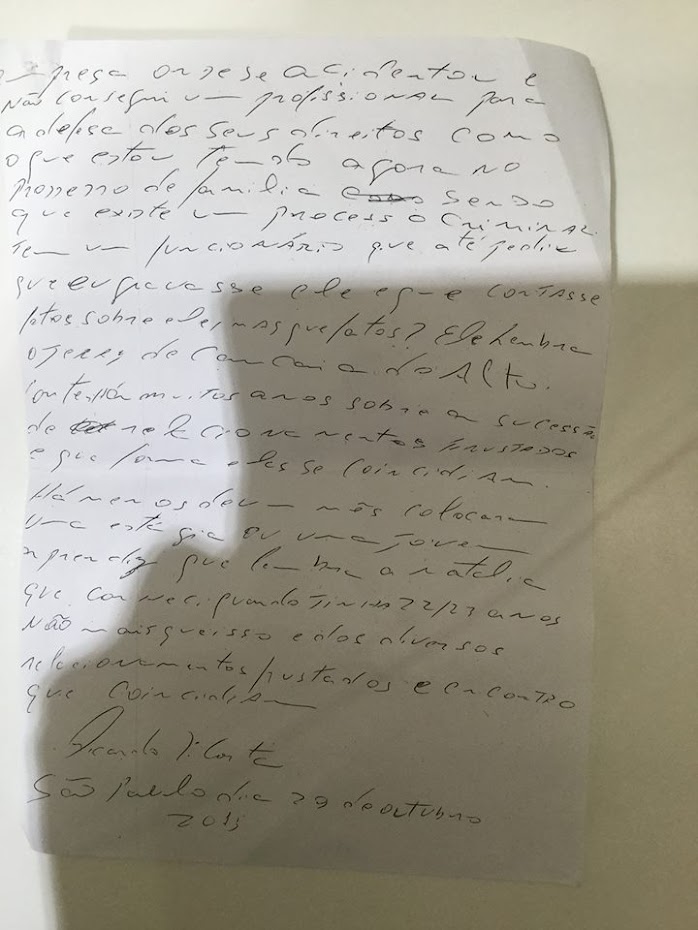 preça onde se acidentou e
Não consegui um profissional para
a defesa dos seus direitos como
o que estou tendo agora no
processo de familia sendo
que existe um processo criminal
Tem um funcionário que até pedia
que eu gravasse ele e que contasse
fatos sobre ele, mas que fatos? Ele lembra
o Jerry de Caucaia do Alto.
muitos anos sobre a sucessão
de relacionamentos frustados
e que forma elas se coincidiam.
Há menos de um mês colocaram
uma estágia ou uma jovem
aprendiz que lembra a natalia
que conheci quando tinha 22/23 anos
Não mais que isso e dos diversos
relacionamentos frustados e encontro
que coincidiam
Ricardo Costa
São Paulo dia 29 de outubro